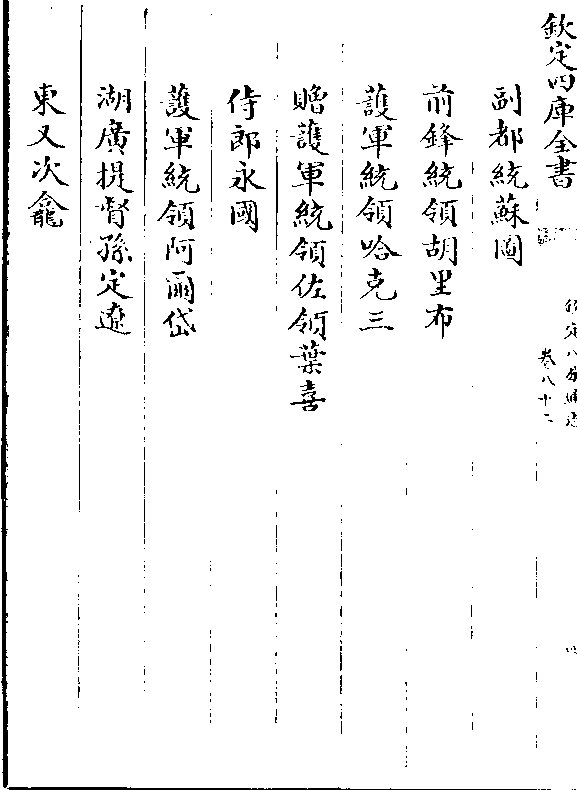 欽定四庫全書
欽定八旗通志
卷八十二
副都統蘇圖
前鋒統領胡里布
護軍統領哈克三
贈護軍統領佐領葉喜
侍郎永國
護軍統領阿爾岱
湖廣提督孫定遼
東又次龕